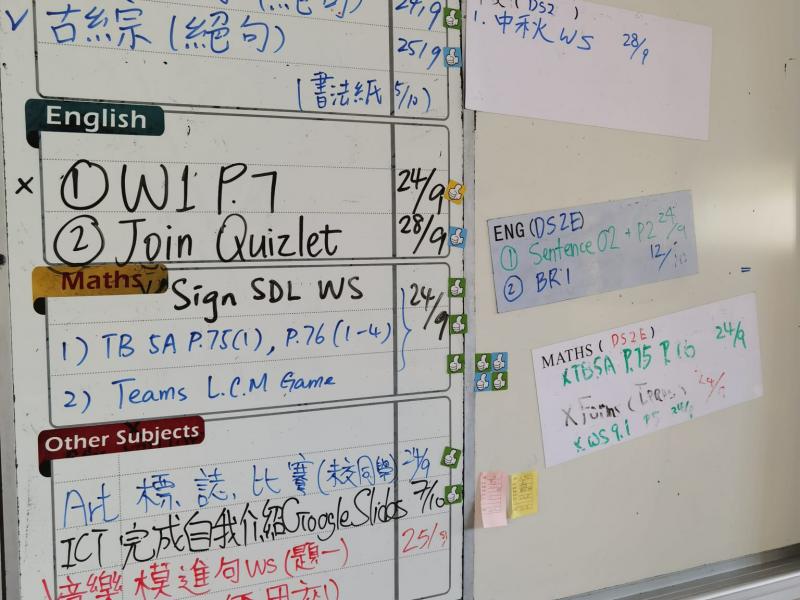 24/9
古綜(絕句) 25/9
(書法紙 5/10)
English
× ① W1 P.7 24/9
② Join Quizlet 28/9
Maths
Sign SDL WS 24/9
1) TB 5A P.75(1), P.76 (1-4)
2) Teams L.C.M Game
Other Subjects
Art 標誌比賽(校同學) 24/9
ICT 完成自我介紹Google Slides 7/10
音樂 模進句WS(題一) 25/9
(DS2)
1. 中秋 WS 28/9
ENG (DS2E)
① Sentence 02 + P2 24/9
② BR1 12/10
MATHS (DS2E)
×TB5A P.75 P.76 24/9
× Forms 24/9
×WS9.1 P5 24/9